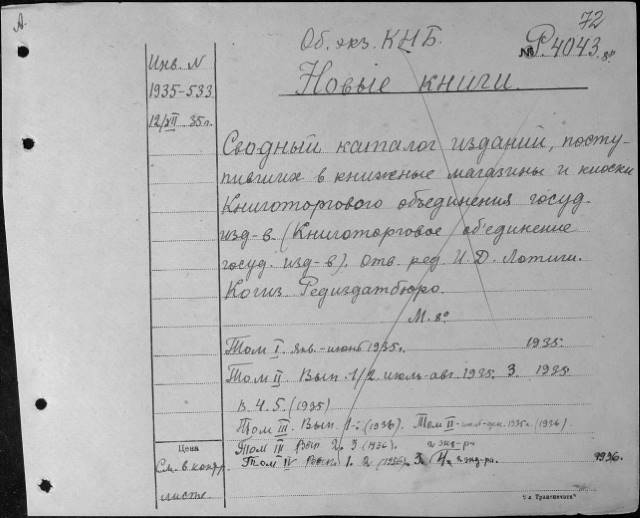 А.
72
Об. экз. КНБ.
№ Р. 4043 8°
Новые книги.
Инв. N
1935-533
12/XII 35 г.
Сводный каталог изданий, посту-
пивших в книжные магазины и киоски
Книготоргового объединения госуд.
изд-в. (Книготорговое об'единение
госуд. изд-в). Отв. ред. И. Д. Лотиги.
Когиз. Редиздатбюро.
М. 8°
Том I. янв.-июнь 1935 г. 1935.
Том II Вып. 1/2 июль-авг. 1935. 3. 1935.
в. 4. 5. (1935)
Том III. Вып. 1. (1936). Том II 1935 г. (1936)
Том III Вып 2. 3 (1936). 2 экз-ра
Том IV 1. 2 (1936). 3. 4. 2 экз-ра. 1936.
Цена
См. в контр.
листе.